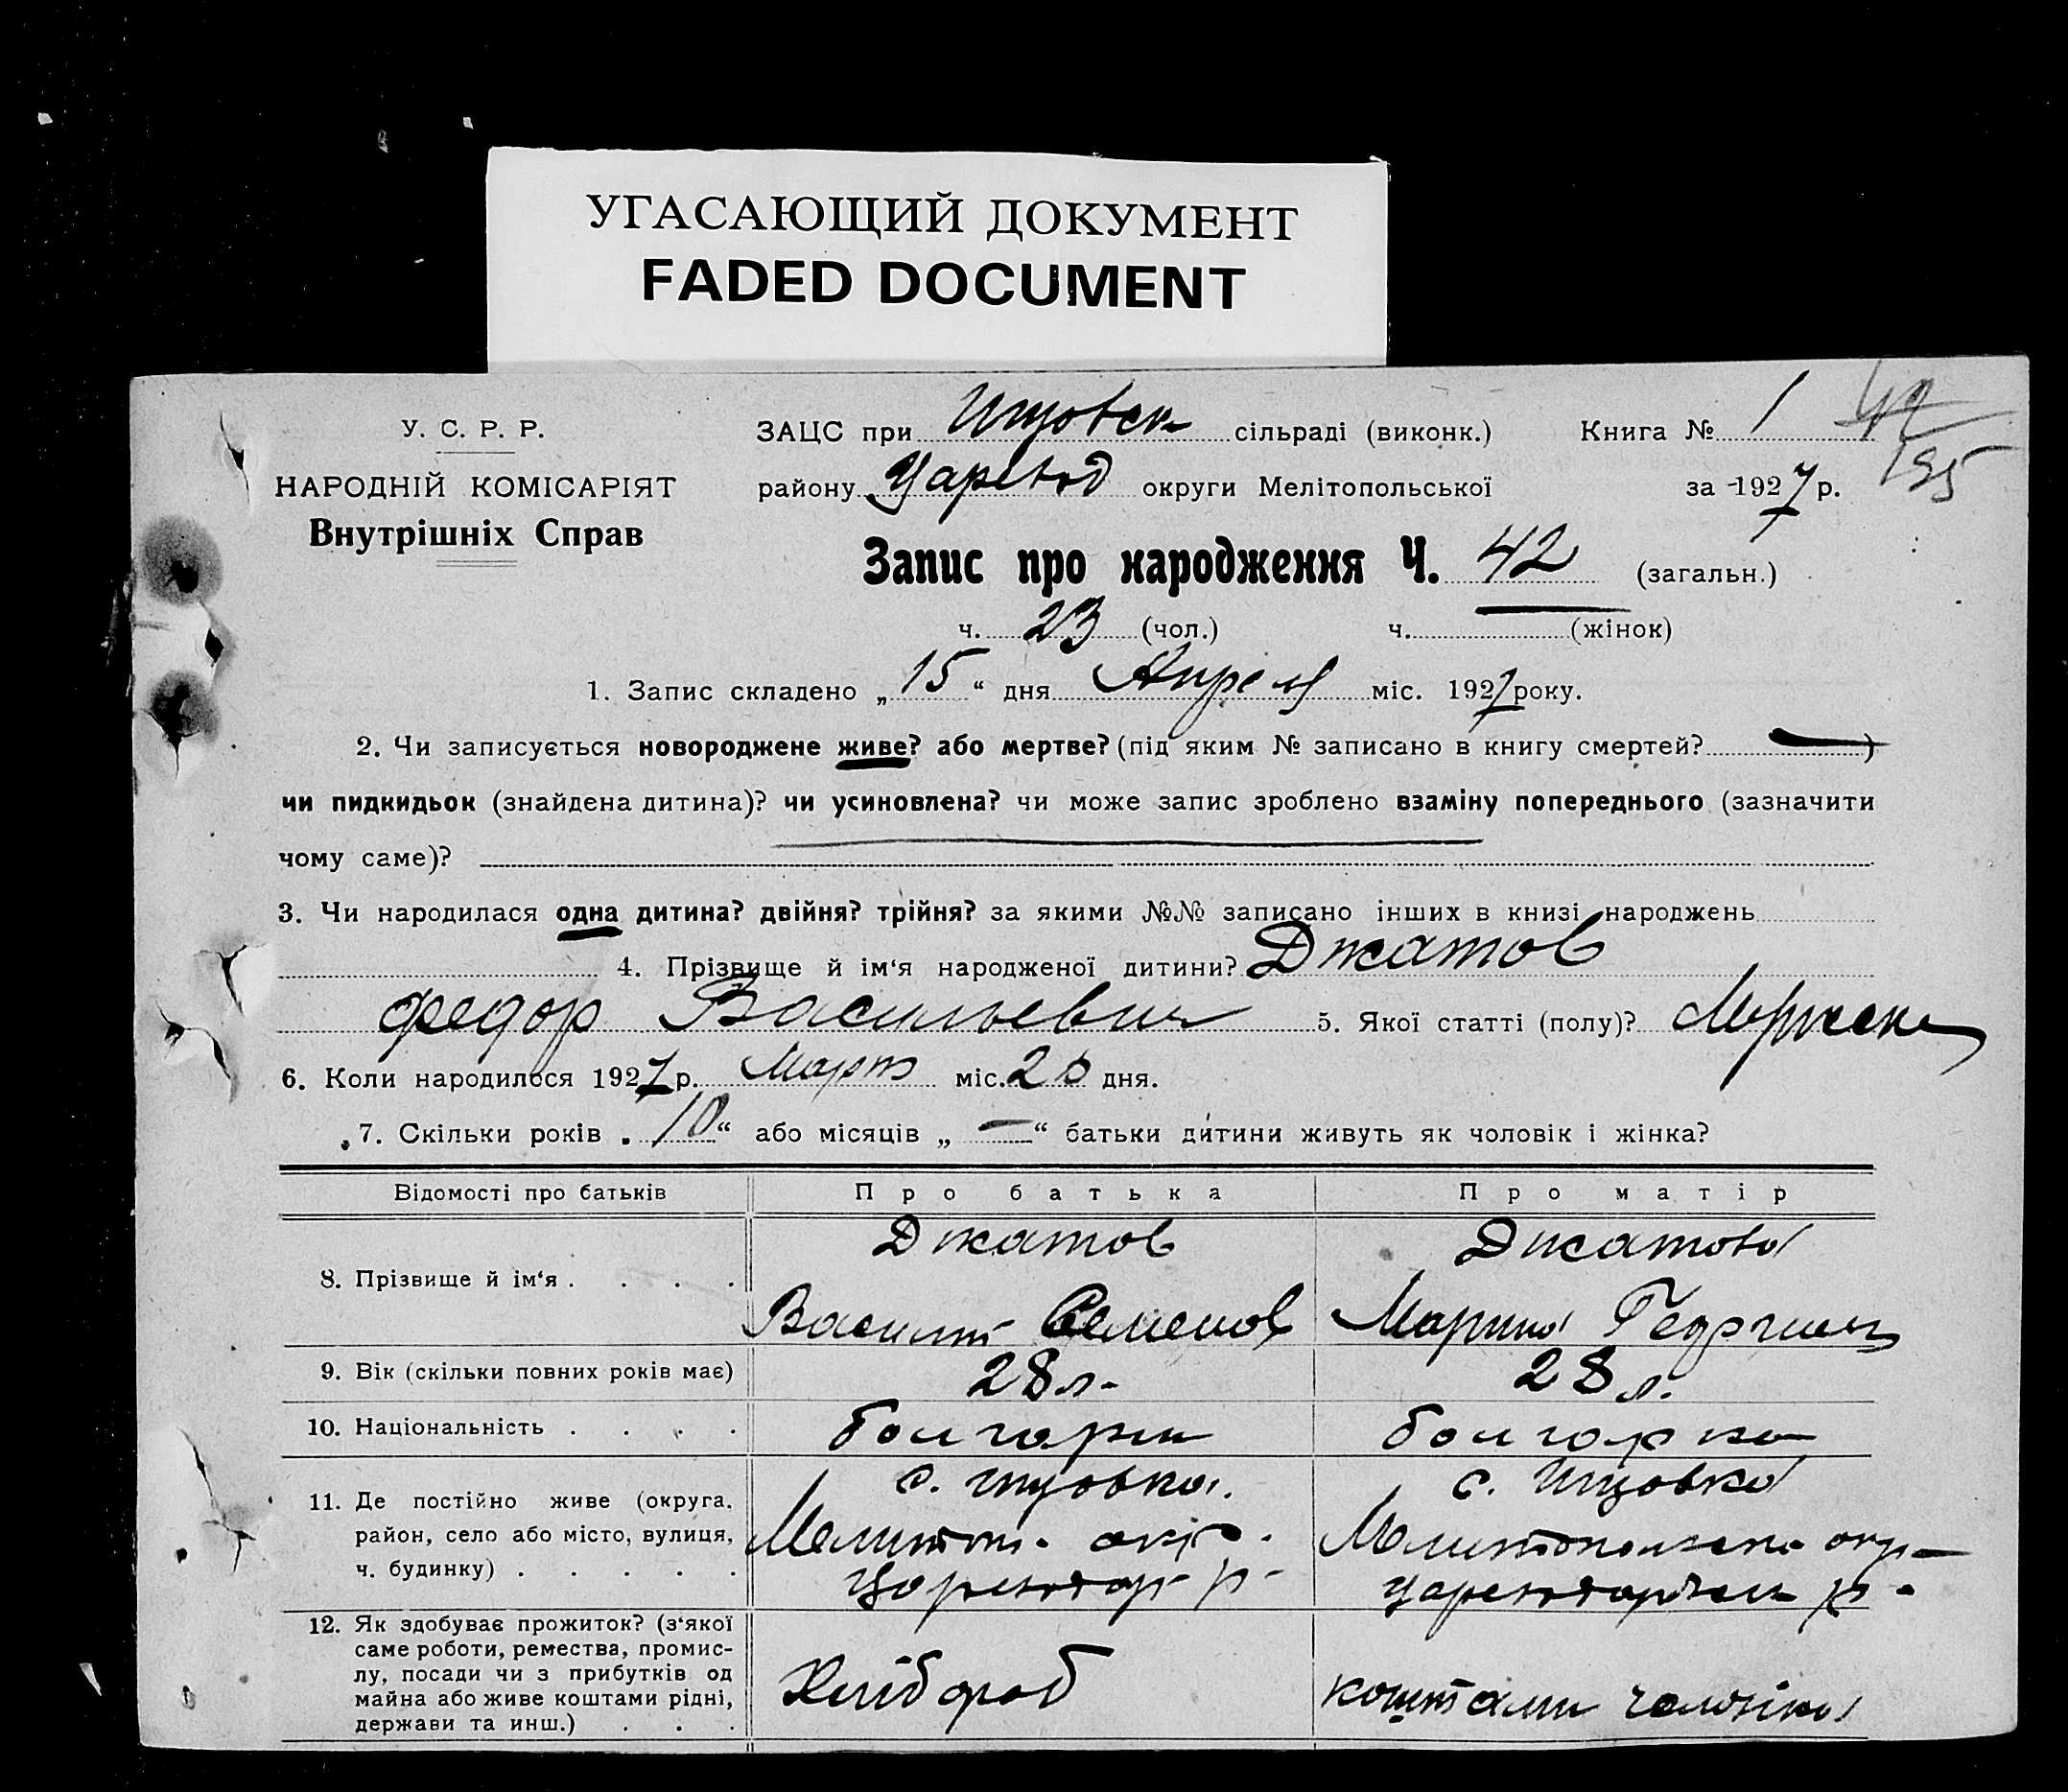 УГАСАЮЩИЙ ДОКУМЕНТ
FADED DOCUMENT
У. С. Р. Р.
НАРОДНІЙ КОМІСАРІЯТ
Внутрішніх Справ
ЗАЦС при сільраді (виконк.) Книга № 1
району округи Мелітопольської за 1927 р.
Запис про народження Ч. 42 (загальн.)
ч. 23 (чол.) ч. (жінок)
1. Запис складено „15“ дня Апреля міс. 1927 року.
2. Чи записується новороджене живе? або мертве? (під яким № записано в книгу смертей? —)
чи пидкидьок (знайдена дитина)? чи усиновлена? чи може запис зроблено взаміну попереднього (зазначити
чому саме)?
3. Чи народилася одна дитина? двійня? трійня? за якими №№ записано інших в книзі народжень
4. Прізвище й ім‘я народженої дитини? Джатов
Федор Васильевич 5. Якої статті (полу)?
6. Коли народилося 1927 р. Март міс. дня.
7. Скільки років „10“ або місяців „—“ батьки дитини живуть як чоловік і жінка?
Відомості про батьків Про батька Про матір
8. Прізвище й ім‘я . . . .
Джатов Джатова
Василий Семенов Марина
9. Вік (скільки повних років має) 28 л. 28 л.
10. Національність . . . . болгарин болгарка
11. Де постійно живе (округа, район, село або місто, вулиця, ч. будинку) . . . . .
с. Інзовка. с. Інзовка
Мелитоп. окр. Мелитопольська окр
р- р-
12. Як здобуває прожиток? (з‘якої
саме роботи, ремества, промис-
лу, посади чи з прибутків од
майна або живе коштами рідні,
держави та инш.) . . .
Хлібороб коштами чоловіка